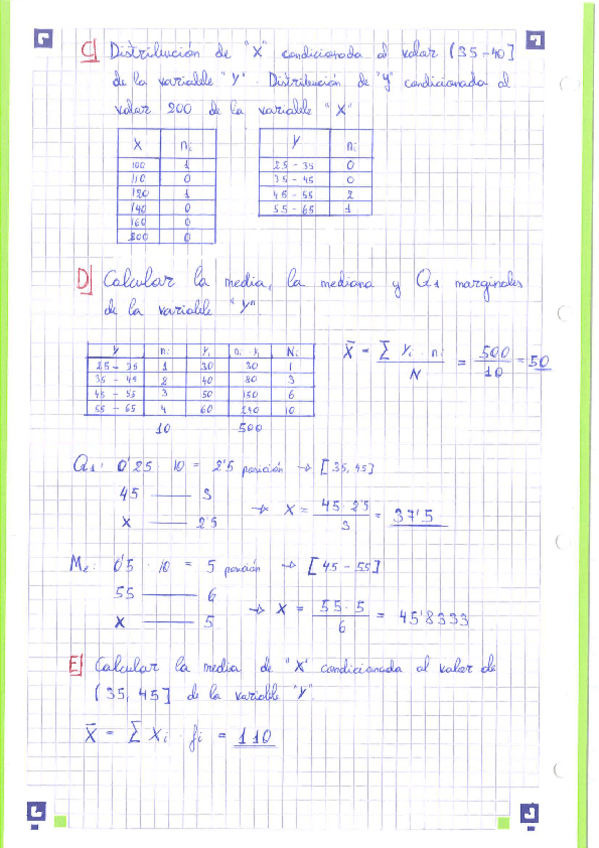 C) Distribución de "X" condicionada al valor (35-40]
de la variable "Y". Distribución de "Y" condicionada al
valor 200 de la variable "X"
X ni
100 1
110 0
120 1
140 0
160 0
200 0
Y ni
25 - 35 0
35 - 45 0
45 - 55 2
55 - 65 1
D) Calcular la media, la mediana y Q1 marginales
de la variable "Y".
Y ni Yi ni yi Ni
25 - 35 1 30 30 1
35 - 45 2 40 80 3
45 - 55 3 50 150 6
55 - 65 4 60 240 10
10 500
X̄ = Σ Yi · ni / N = 500 / 10 = 50
Q1: 0'25 · 10 = 2'5 posición → [35, 45]
45 —— 3
x —— 2'5
→ X = 45 · 2'5 / 3 = 37'5
Me: 0'5 · 10 = 5 posición → [45 - 55]
55 —— 6
x —— 5
→ X = 55 · 5 / 6 = 45'8333
E) Calcular la media de "X" condicionada al valor de
(35, 45] de la variable "Y".
X̄ = Σ Xi · fi = 110